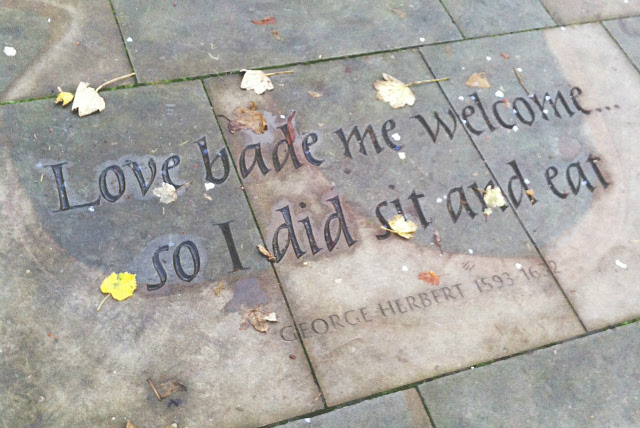 Love bade me welcome...
so I did sit and eat
GEORGE HERBERT 1593-1632